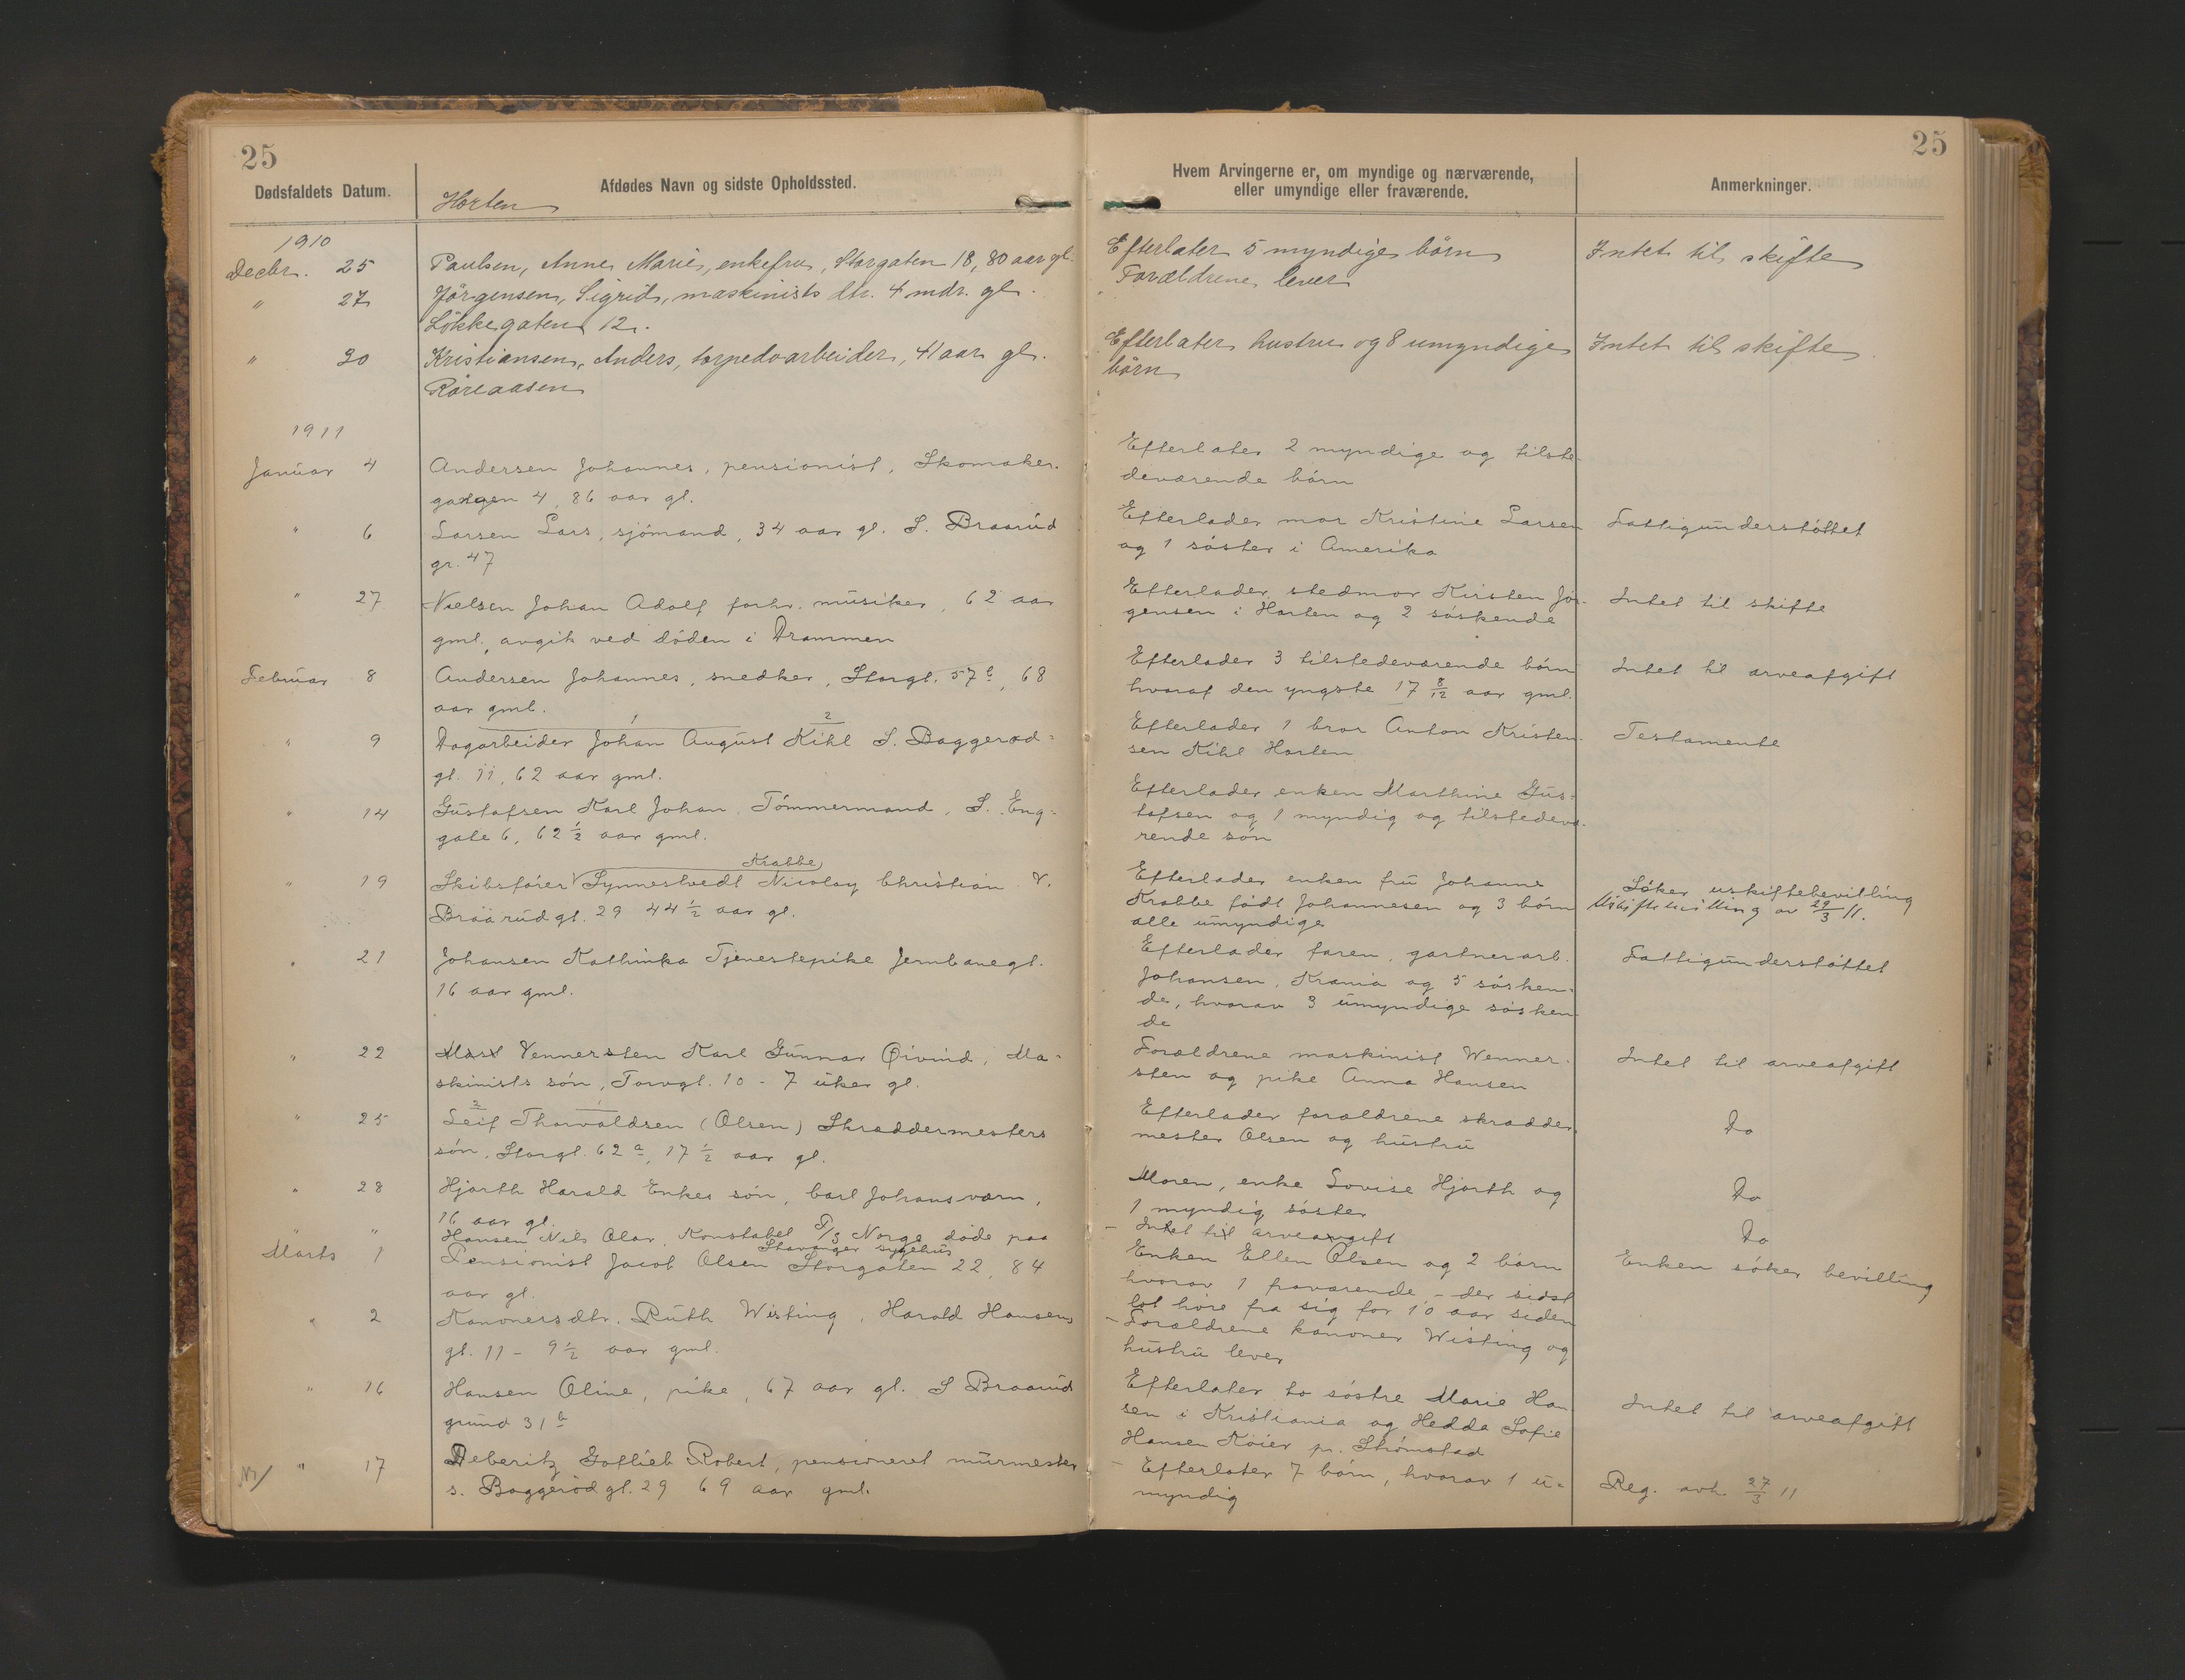 25
25
Dødsfaldets Datum.
Afdødes Navn og sidste Opholdssted.
Hvem Arvingerne er, om myndige og nærværende,
eller umyndige eller fraværende.
Anmerkninger.
Horten
1910
Decbr. 25 Paulsen, Anne Marie, enkefru, Storgaten 18, 80 aar gl. Efterlater 5 myndige börn Intet til skifte
" 27 Jörgensen, Sigrid, maskinists dtr. 4 mdr. gl. Forældrene lever
Lökkegaten 12.
" 30 Kristiansen, Anders, torpedoarbeider, 41 aar gl. Efterlater hustru og 8 umyndige Intet til skifte
Röreaasen börn
1911
Januar 4 Andersen Johannes, pensionist, Skomaker- Efterlater 2 myndige og tilste-
gangen 4, 86 aar gl. deværende börn
" 6 Larsen Lars, sjömand, 34 aar gl. S. Braarud Efterlader mor Kristine Larsen Fattigunderstöttet
gr. 47 og 1 söster i Amerika
" 27 Nielsen Johan Adolf forhv. musiker, 62 aar Efterlader stedmor Kirsten Jör- Intet til skifte
gml., avgik ved döden i Drammen gensen i Horten og 2 söskende
Februar 8 Andersen Johannes, snedker, Storgt. 57 c, 68 Efterlader 3 tilstedeværende börn Intet til arveafgift
aar gml. hvoraf den yngste 17 8/12 aar gml.
1 2
" 9 Dagarbeider Johan August Kihl S. Baggeröd= Efterlader 1 bror Anton Kristen- Testamente
gt. 11, 62 aar gml. sen Kihl Horten
" 14 Gustafsen Karl Johan, Tömmermand, S. Eng= Efterlader enken Marthine Gus=
gate 6, 62 1/2 aar gml. tafsen og 1 myndig og tilstedevæ-
rende sön
Krabbe
" 19 Skibsförer Synnestvedt Nicolay Christian V. Efterlader enken fru Johanne Söker uskiftebevilling
Braarud gt. 29 44 1/2 aar gl. Krabbe födt Johannesen og 3 börn Uskiftebevilling av 29/3 11.
alle umyndige
" 21 Johansen Kathinka Tjenestepike Jernbanegt. Efterlader faren, gartnerarb. Fattigunderstöttet
16 aar gml. Johansen, Krania og 5 sösken=
de, hvorav 3 umyndige sösken
de
" 22 Vennersten Karl Gunnar Øivind, Ma= Forældrene maskinist Wenner- Intet til arveafgift
skinists sön, Torvgt. 10 - 7 uker gl. sten og pike Anna Hansen
2 1
" 25 Leif Thorvaldsen (Olsen) Skræddermesters Efterlader forældrene skrædder- Do
sön, Storgt. 62 a, 17 1/2 aar gl. mester Olsen og hustru
" 28 Hjorth Harald Enkes sön, Carl Johansværn, Moren, enke Lovise Hjorth og Do
16 aar gl. 1 myndig söster
" " Hansen Nils Olav, Konstabel P/S Norge döde paa - Intet til arveavgift Do
Stavanger sygehus
Marts 1 Pensionist Jacob Olsen Storgaten 22, 84 Enken Ellen Olsen og 2 börn Enken söker bevilling
aar gl. hvorav 1 fraværende - der sidst
lot höre fra sig for 10 aar siden
" 2 Kanonersdtr. Ruth Wisting, Harald Hansens - Forældrene kanoner Wisting og
gt. 11 - 9 1/2 aar gml. hustru lever
" 16 Hansen Oline, pike, 67 aar gl. S Braarud Efterlater to söstre Marie Han Intet til arveafgift
grund 31 b sen i Kristiania og Hedda Sofie
Hansen Röier pr. Strömstad
" 17 Deberitz Gotlieb Robert, pensioneret murmester - Efterlater 7 börn, hvorav 1 u= Reg. avh. 27/3 11
s. Baggeröd gt. 29 69 aar gml. myndig